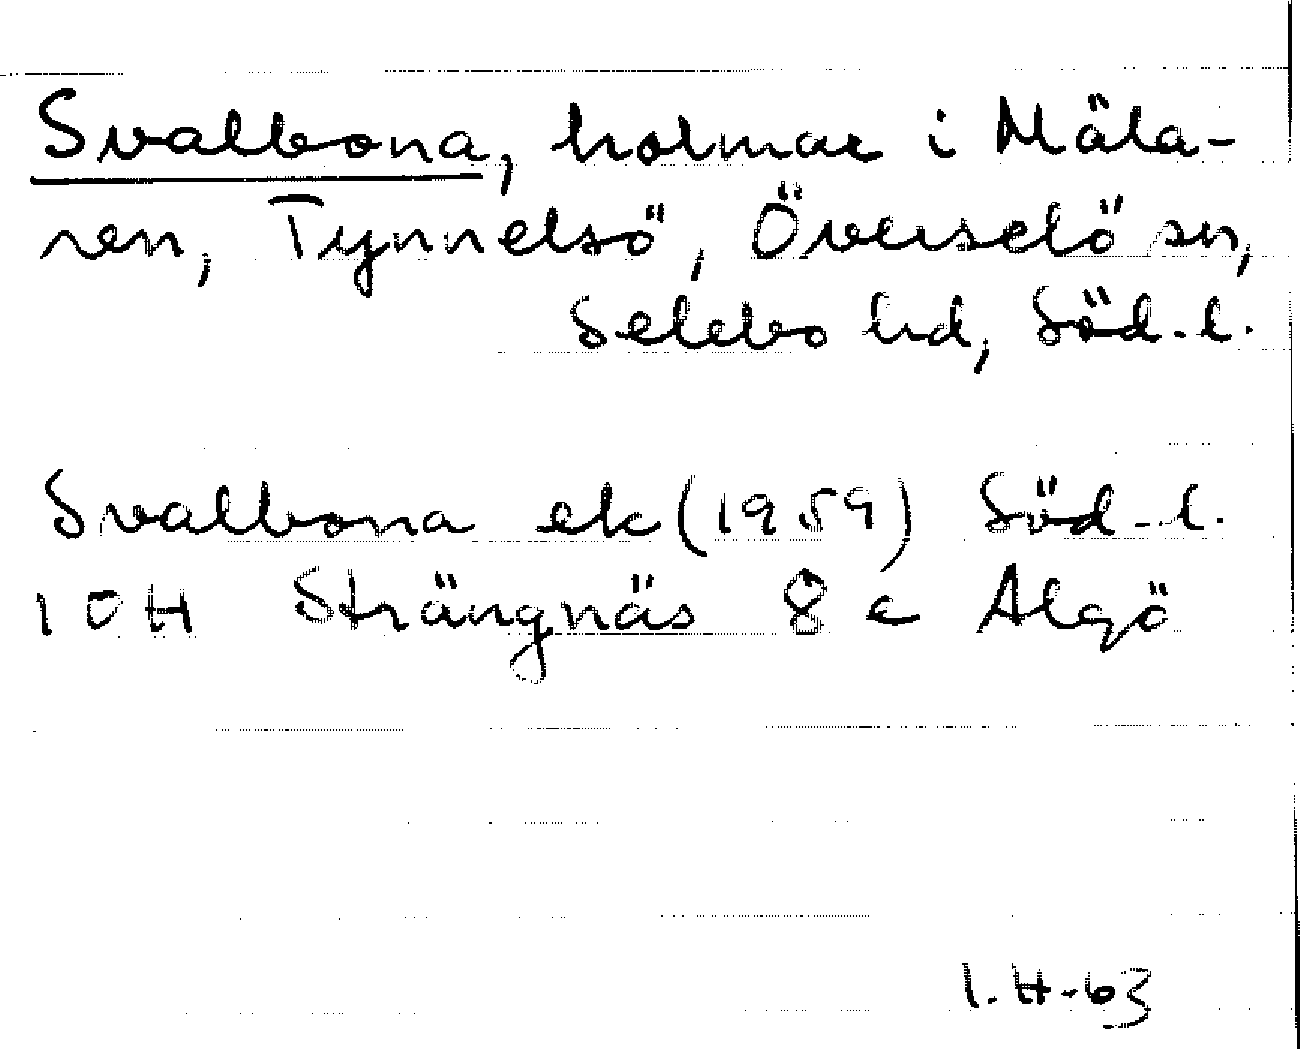 Svalbona, holmar i Mäla-
ren, Tynnelsö, Överselö sn,
Selebo hd, Söd. l.
Svalbona ek (1959) Söd. l.
10H Strängnäs 8 c Algö
I.H-63